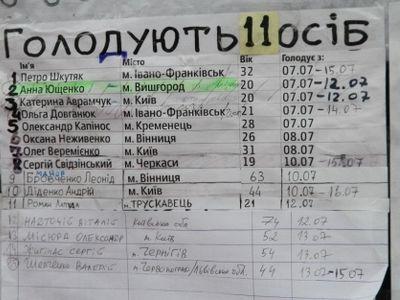 ГОЛОДУЮТЬ 11 ОСІБ
Ім'я Місто Вік Голодує з:
1 Петро Шкутяк м. Івано-Франківськ 32 07.07 - 15.07
2 Анна Ющенко м. Вишгород 20 07.07 - 12.07
3 Катерина Аврамчук м. Київ 20 07.07 - 12.07
4 Ольга Довганюк м. Івано-Франківськ 21 07.07 - 14.07
5 Олександр Капінос м. Кременець 28 08.07
6 Оксана Неживенко м. Вінниця 26 08.07
7 Олег Веремієнко м. Київ 31 08.07
8 Сергій Свідзінський м. Черкаси 19 10.07 - 15.07
9 Бровченко Леонід м. Вінниця 63 10.07
10 Діденко Андрій м. Київ 44 10.07 - 16.07
11 Роман м. ТРУСКАВЕЦЬ 21 12.07
12 ВІТАЛІЄ Київська обл 74 12.07
13 МІСЮРА ОЛЕКСАНДР м. Київ 52 13.07
СЕРГІЙ м. Чернігів 54 13.07
ВАЛЕРІЙ м. Червоноград/Львівська обл. 44 13.07-15.07